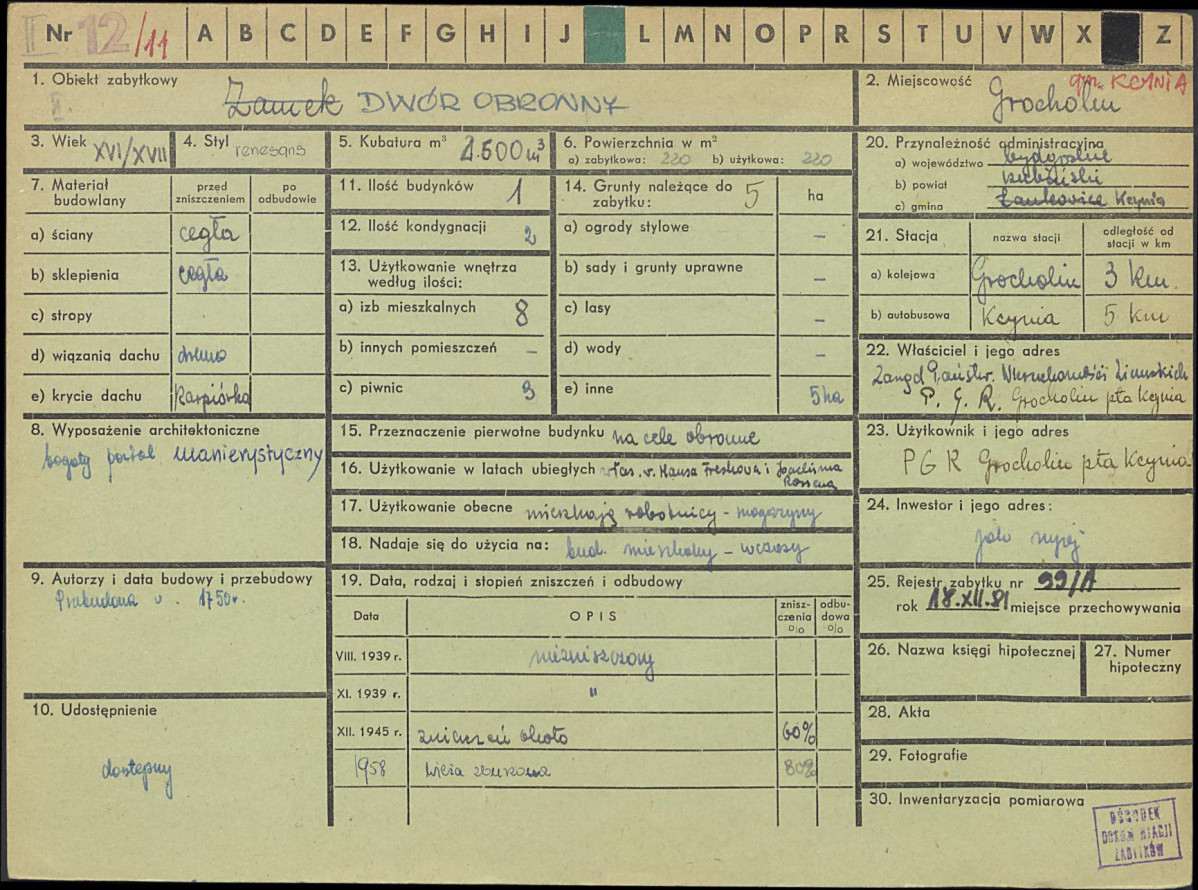 II Nr 12/11 A B C D E F G H I J L M N O P R S T U V W X Z
1. Obiekt zabytkowy
II.
Zamek DWÓR OBRONNY
2. Miejscowość gm. KCYNIA
Grocholin
3. Wiek XVI/XVII
4. Styl renesans
5. Kubatura m³ 2.600 m³
6. Powierzchnia w m²
a) zabytkowa: 220 b) użytkowa: 220
7. Materiał budowlany
przed zniszczeniem
po odbudowie
a) ściany cegła
b) sklepienia cegła
c) stropy
d) wiązania dachu drewno
e) krycie dachu Karpiówka
8. Wyposażenie architektoniczne
bogaty portal manierystyczny
9. Autorzy i data budowy i przebudowy
Przebudowa 1750 r.
10. Udostępnienie
dostępny
11. Ilość budynków 1
12. Ilość kondygnacji 2
13. Użytkowanie wnętrza
według ilości:
a) izb mieszkalnych 8
b) innych pomieszczeń –
c) piwnic 3
14. Grunty należące do
zabytku: 5 ha
a) ogrody stylowe –
b) sady i grunty uprawne –
c) lasy –
d) wody –
e) inne 5 ha
15. Przeznaczenie pierwotne budynku na cele obronne
16. Użytkowanie w latach ubiegłych
17. Użytkowanie obecne mieszkają robotnicy - magazyny
18. Nadaje się do użycia na: bud. mieszkalny - wczasy
19. Data, rodzaj i stopień zniszczeń i odbudowy
Data OPIS zniszczenia o|o odbudowa o|o
VIII. 1939 r. niezniszczony
XI. 1939 r. "
XII. 1945 r. zniszczeń około 60%
1958 wieża zburzona 80%
20. Przynależność administracyjna
a) województwo bydgoskie
b) powiat szubiński
c) gmina Kcynia
21. Stacja
nazwa stacji
odległość od stacji w km
a) kolejowa Grocholin 3 km.
b) autobusowa Kcynia 5 km
22. Właściciel i jego adres
Zarząd Państw. Nieruchomości Ziemskich
P. G. R. Grocholin pta Kcynia
23. Użytkownik i jego adres
PGR Grocholin pta Kcynia
24. Inwestor i jego adres:
jak wyżej
25. Rejestr zabytku nr 99/A
rok 18.XII.81 miejsce przechowywania
26. Nazwa księgi hipotecznej
27. Numer hipoteczny
28. Akta
29. Fotografie
30. Inwentaryzacja pomiarowa
OŚRODEK
DOKUMENTACJI
ZABYTKÓW